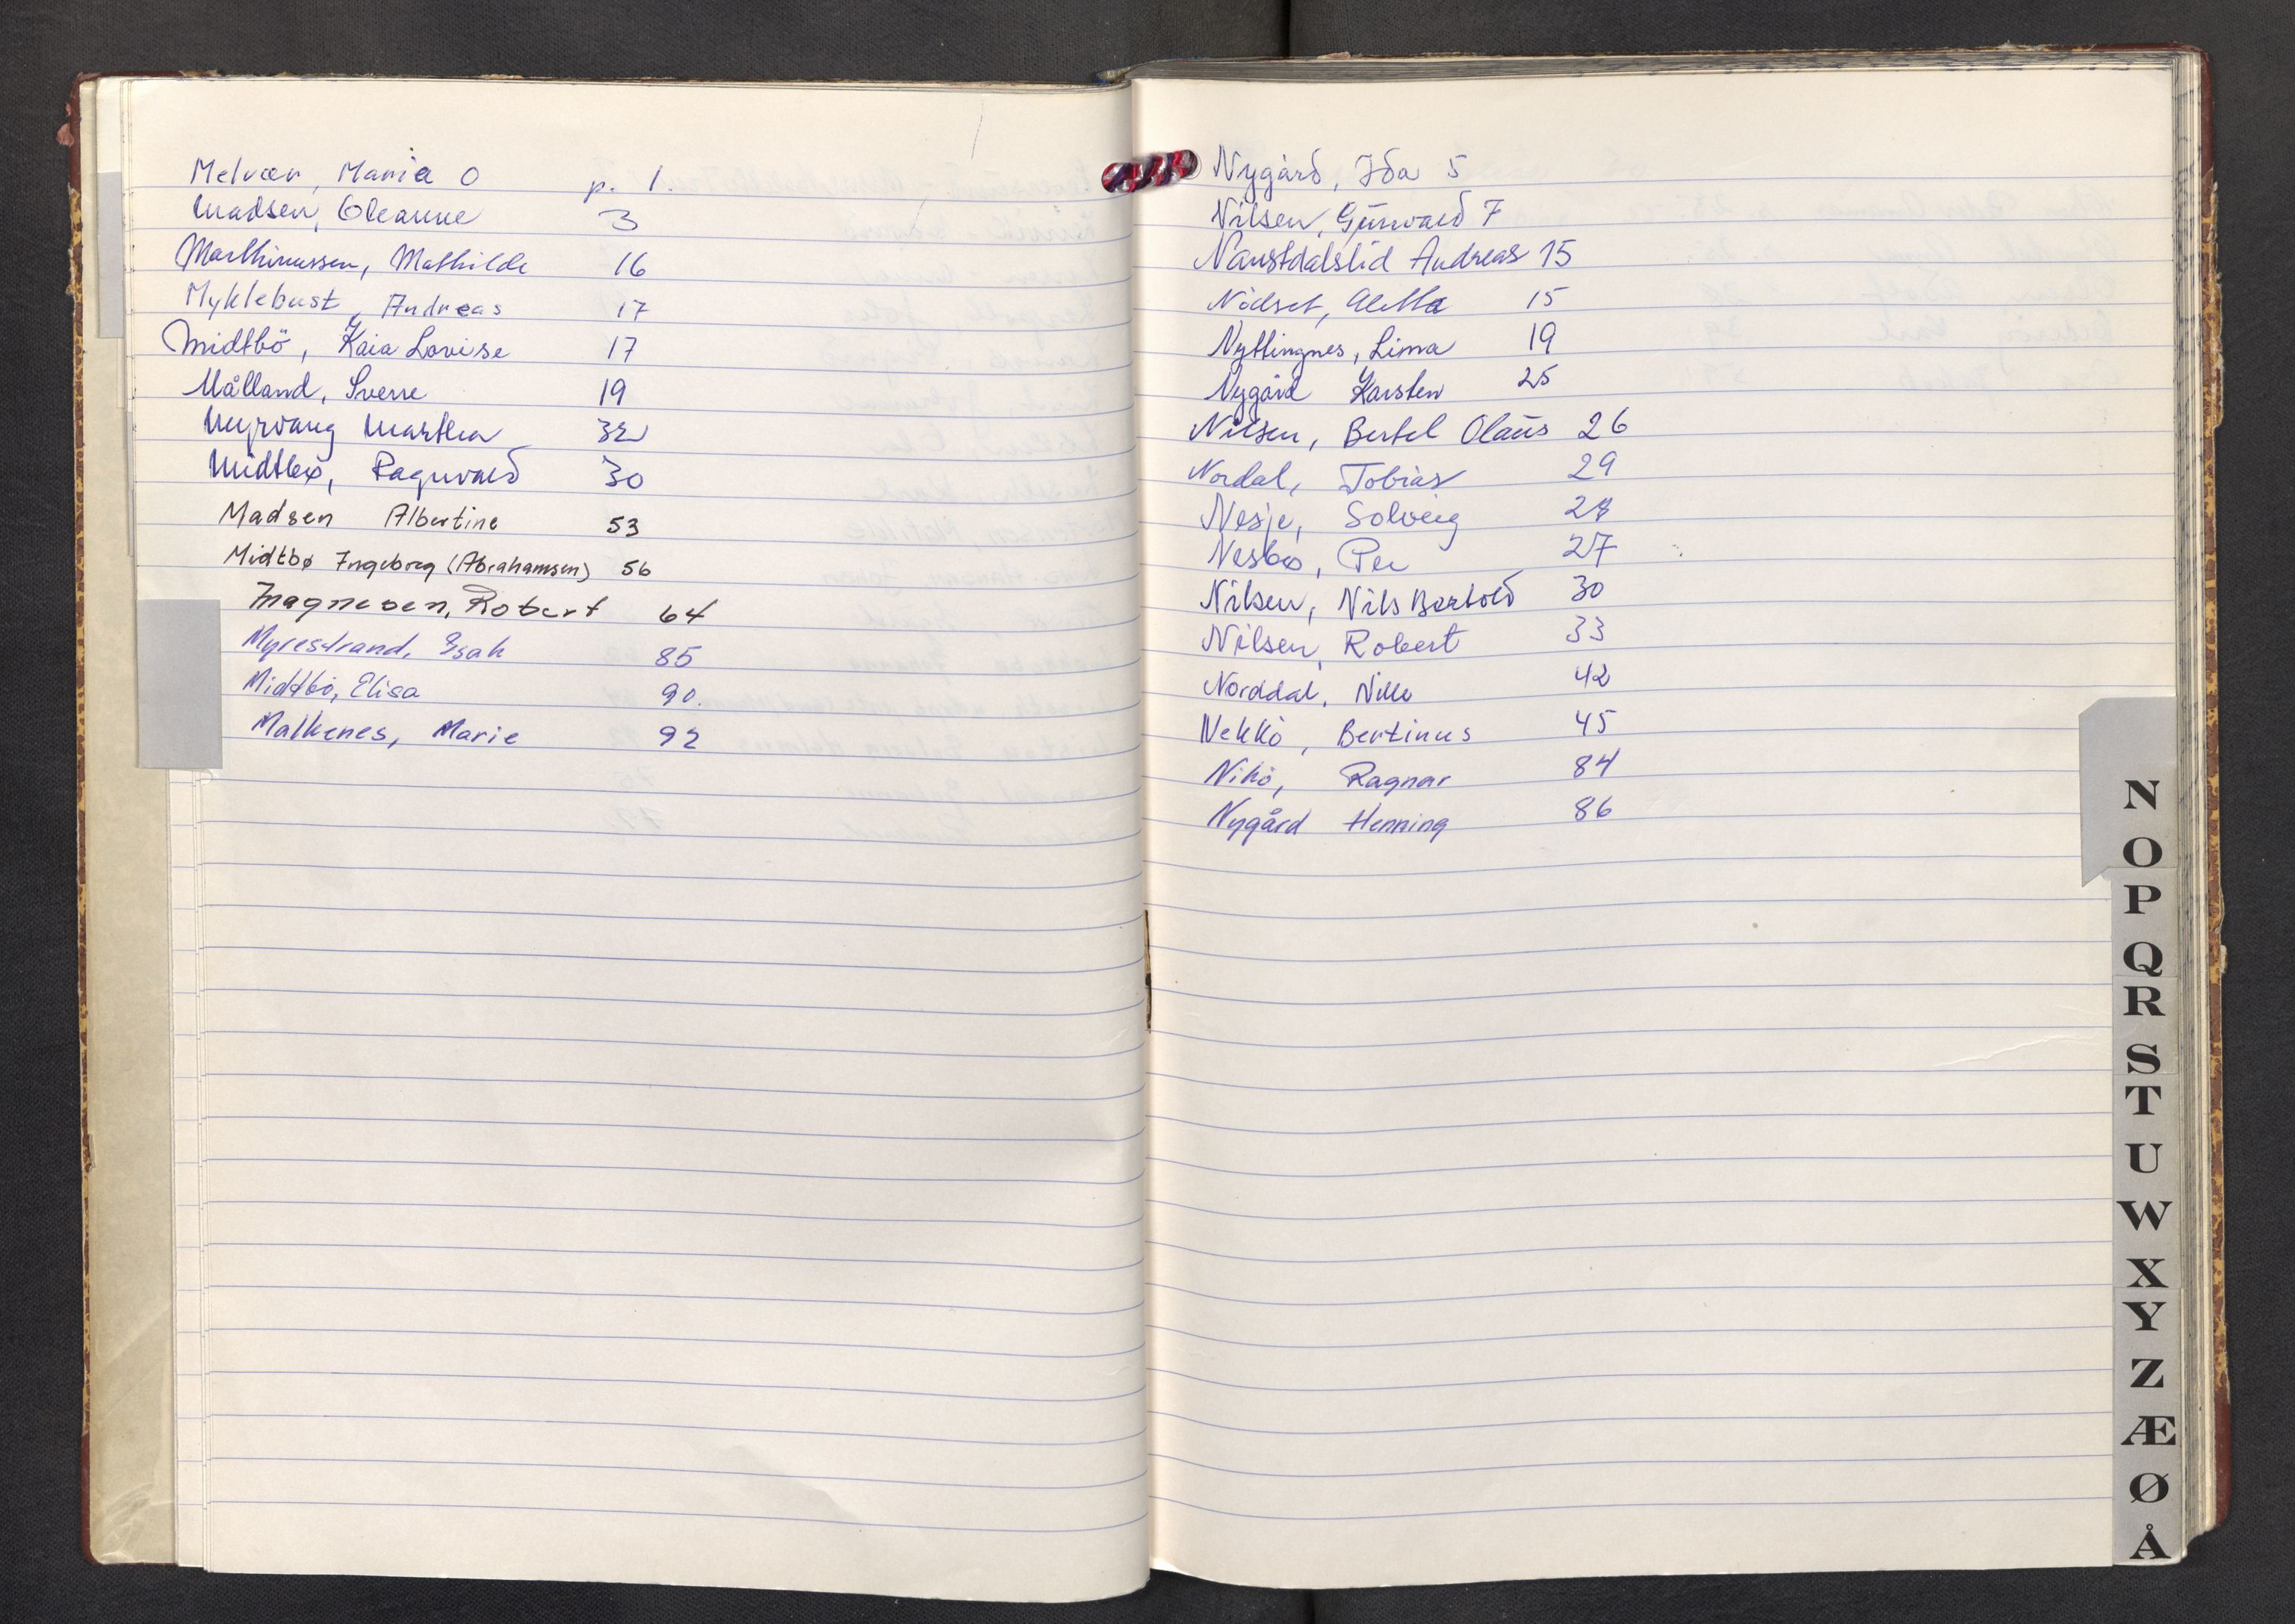 Melvær, Maria O p. 1.
Madsen, Oleanne 3
Marthinussen, Mathilde 16
Myklebust, Andreas 17
Midtbö, Kaia Lovise 17
Målland, Sverre 19
Myrvang Marthea 32
Midtbø, Ragnvald 30
Madsen Albertine 53
Midtbø Ingeborg (Abrahamsen) 56
Magnesen, Robert 64
Myrestrand, Isak 85
Midtbö, Elisa 90.
Malkenes, Marie 92
Nygård, Ida 5
Nilsen, Gunvald 7
Naustdalslid Andreas 15
Nödset, Aletta 15
Nyttingnes, Lima 19
Nygård Karsten 25
Nilsen, Bertel Olaus 26
Nordal, Tobias 29
Nesje, Solveig
Nesbø, Per 27
Nilsen, Nils Bertold 30
Nilsen, Robert 33
Norddal, Nille 42
Nekkö, Bertinus 45
Nikö, Ragnar 84
Nygård Henning 86
N
O
P
Q
R
S
T
U
W
X
Y
Z
Æ
Ø
Å